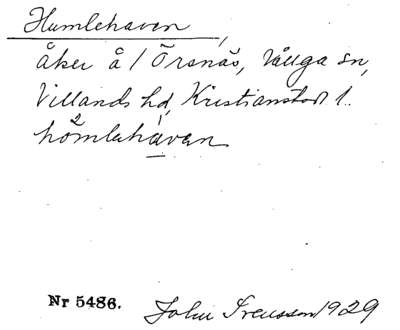 Humlehaven,
åker å / Örsnäs, Vånga sn,
Villands hd, Kristianstads l.
hömlehávan
Nr 5486. John Svensson 1929